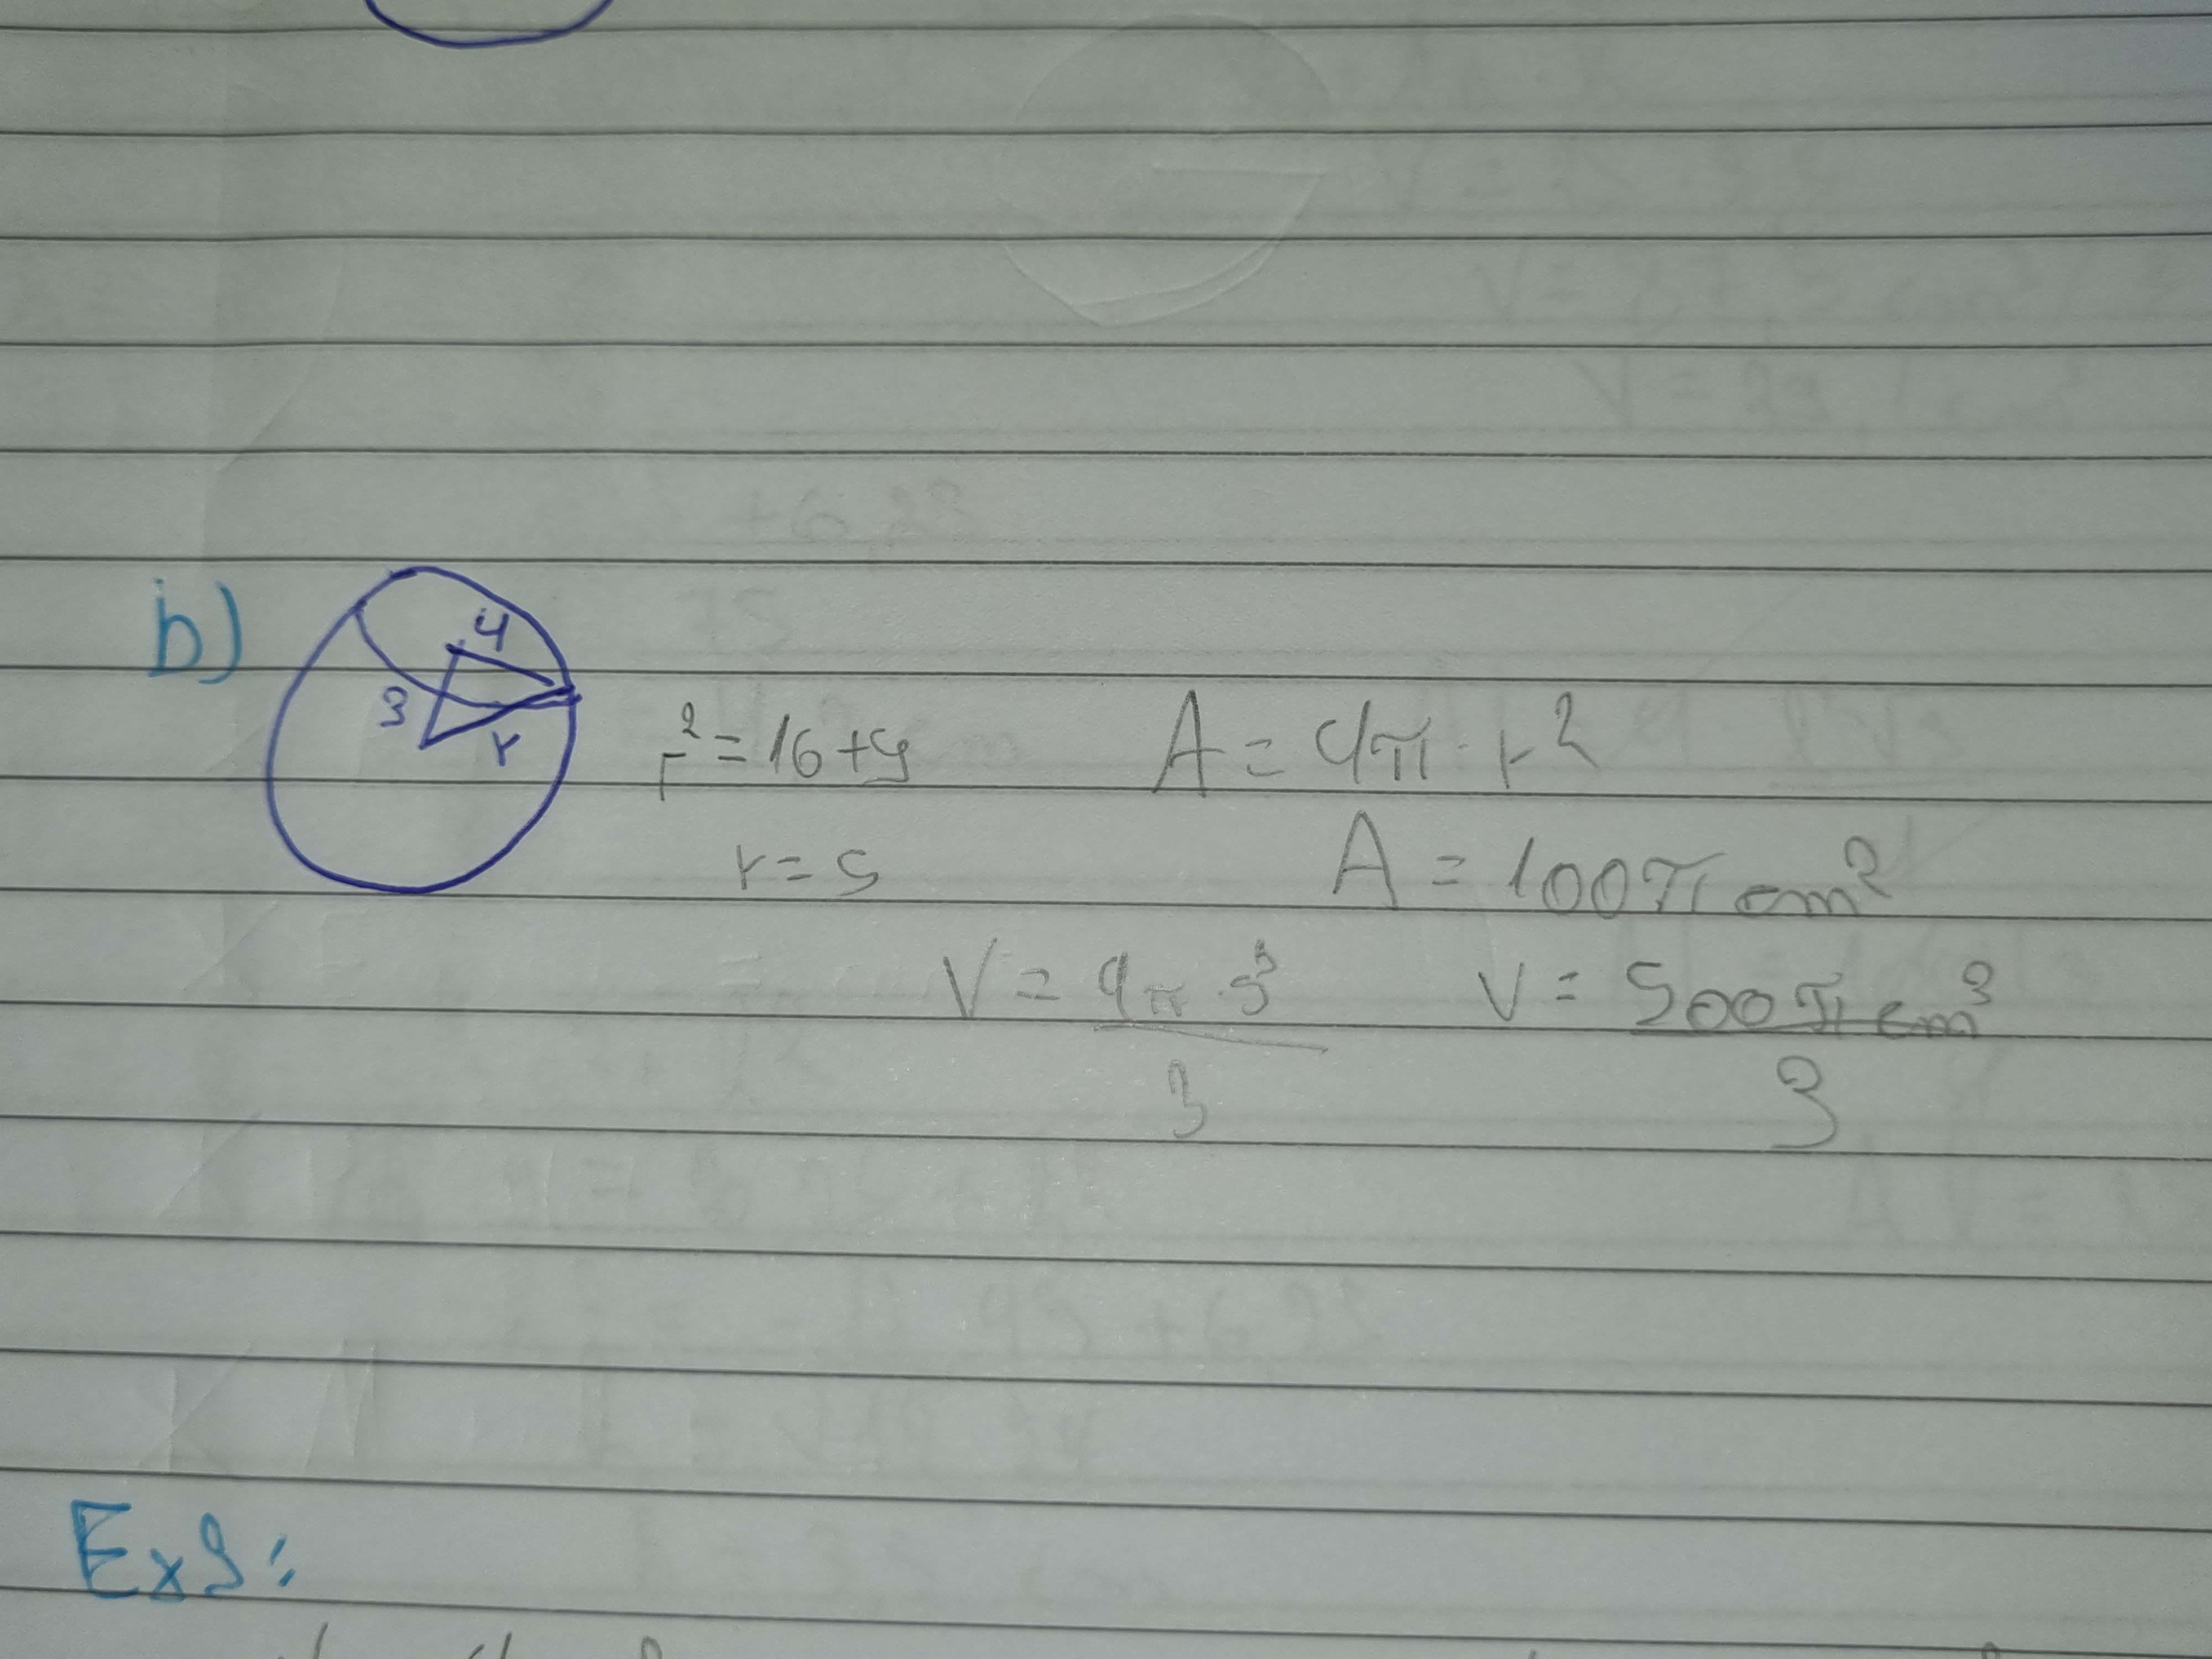 b)
4
3
r
r² = 16 + 9
A = 4π · r²
r = 5
A = 100π cm²
V = 4π · 5³ / 3
V = 500π cm³ / 3
Ex 8: